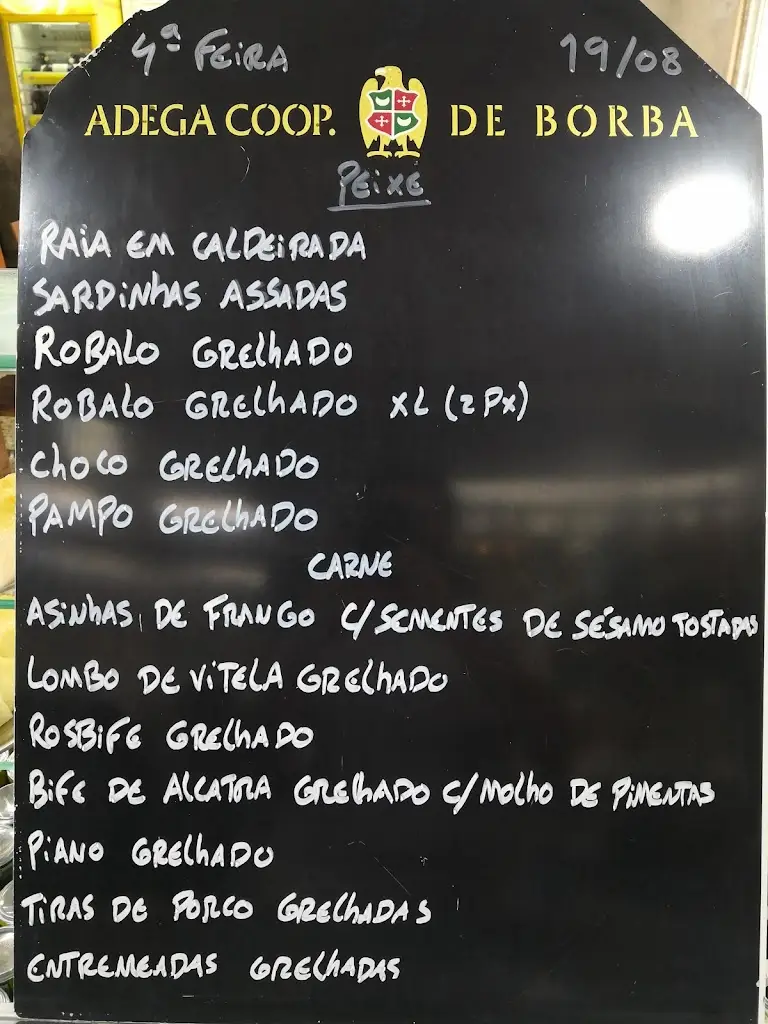 4ª FEIRA 19/08
ADEGA COOP. DE BORBA
PEIXE
RAIA EM CALDEIRADA
SARDINHAS ASSADAS
ROBALO GRELHADO
ROBALO GRELHADO XL (2 Px)
CHOCO GRELHADO
PAMPO GRELHADO
CARNE
ASINHAS DE FRANGO C/SEMENTES DE SÉSAMO TOSTADAS
LOMBO DE VITELA GRELHADO
ROSBIFE GRELHADO
BIFE DE ALCATRA GRELHADO C/MOLHO DE PIMENTAS
PIANO GRELHADO
TIRAS DE PORCO GRELHADAS
ENTREMEADAS GRELHADAS